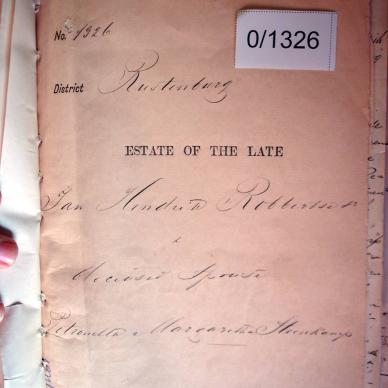 No. 1326
0/1326
District Rustenburg
ESTATE OF THE LATE
Jan Hendrik Robbertse
&
Spouse
Petronella Margaretha Steenkamp